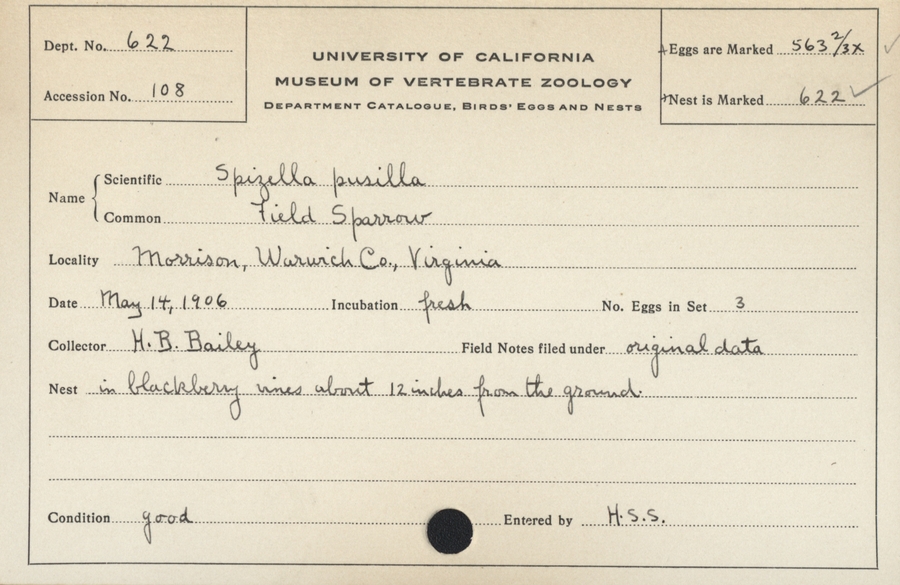 Dept. No. 622
Accession No. 108
UNIVERSITY OF CALIFORNIA
MUSEUM OF VERTEBRATE ZOOLOGY
DEPARTMENT CATALOGUE, BIRDS' EGGS AND NESTS
Eggs are Marked 563 2/3x
Nest is Marked 622
Name
Scientific Spizella pusilla
Common Field Sparrow
Locality Morrison, Warwich Co., Virginia
Date May 14, 1906 Incubation fresh No. Eggs in Set 3
Collector H. B. Bailey Field Notes filed under original data
Nest in blackberry vines about 12 inches from the ground.
Condition good Entered by H.S.S.